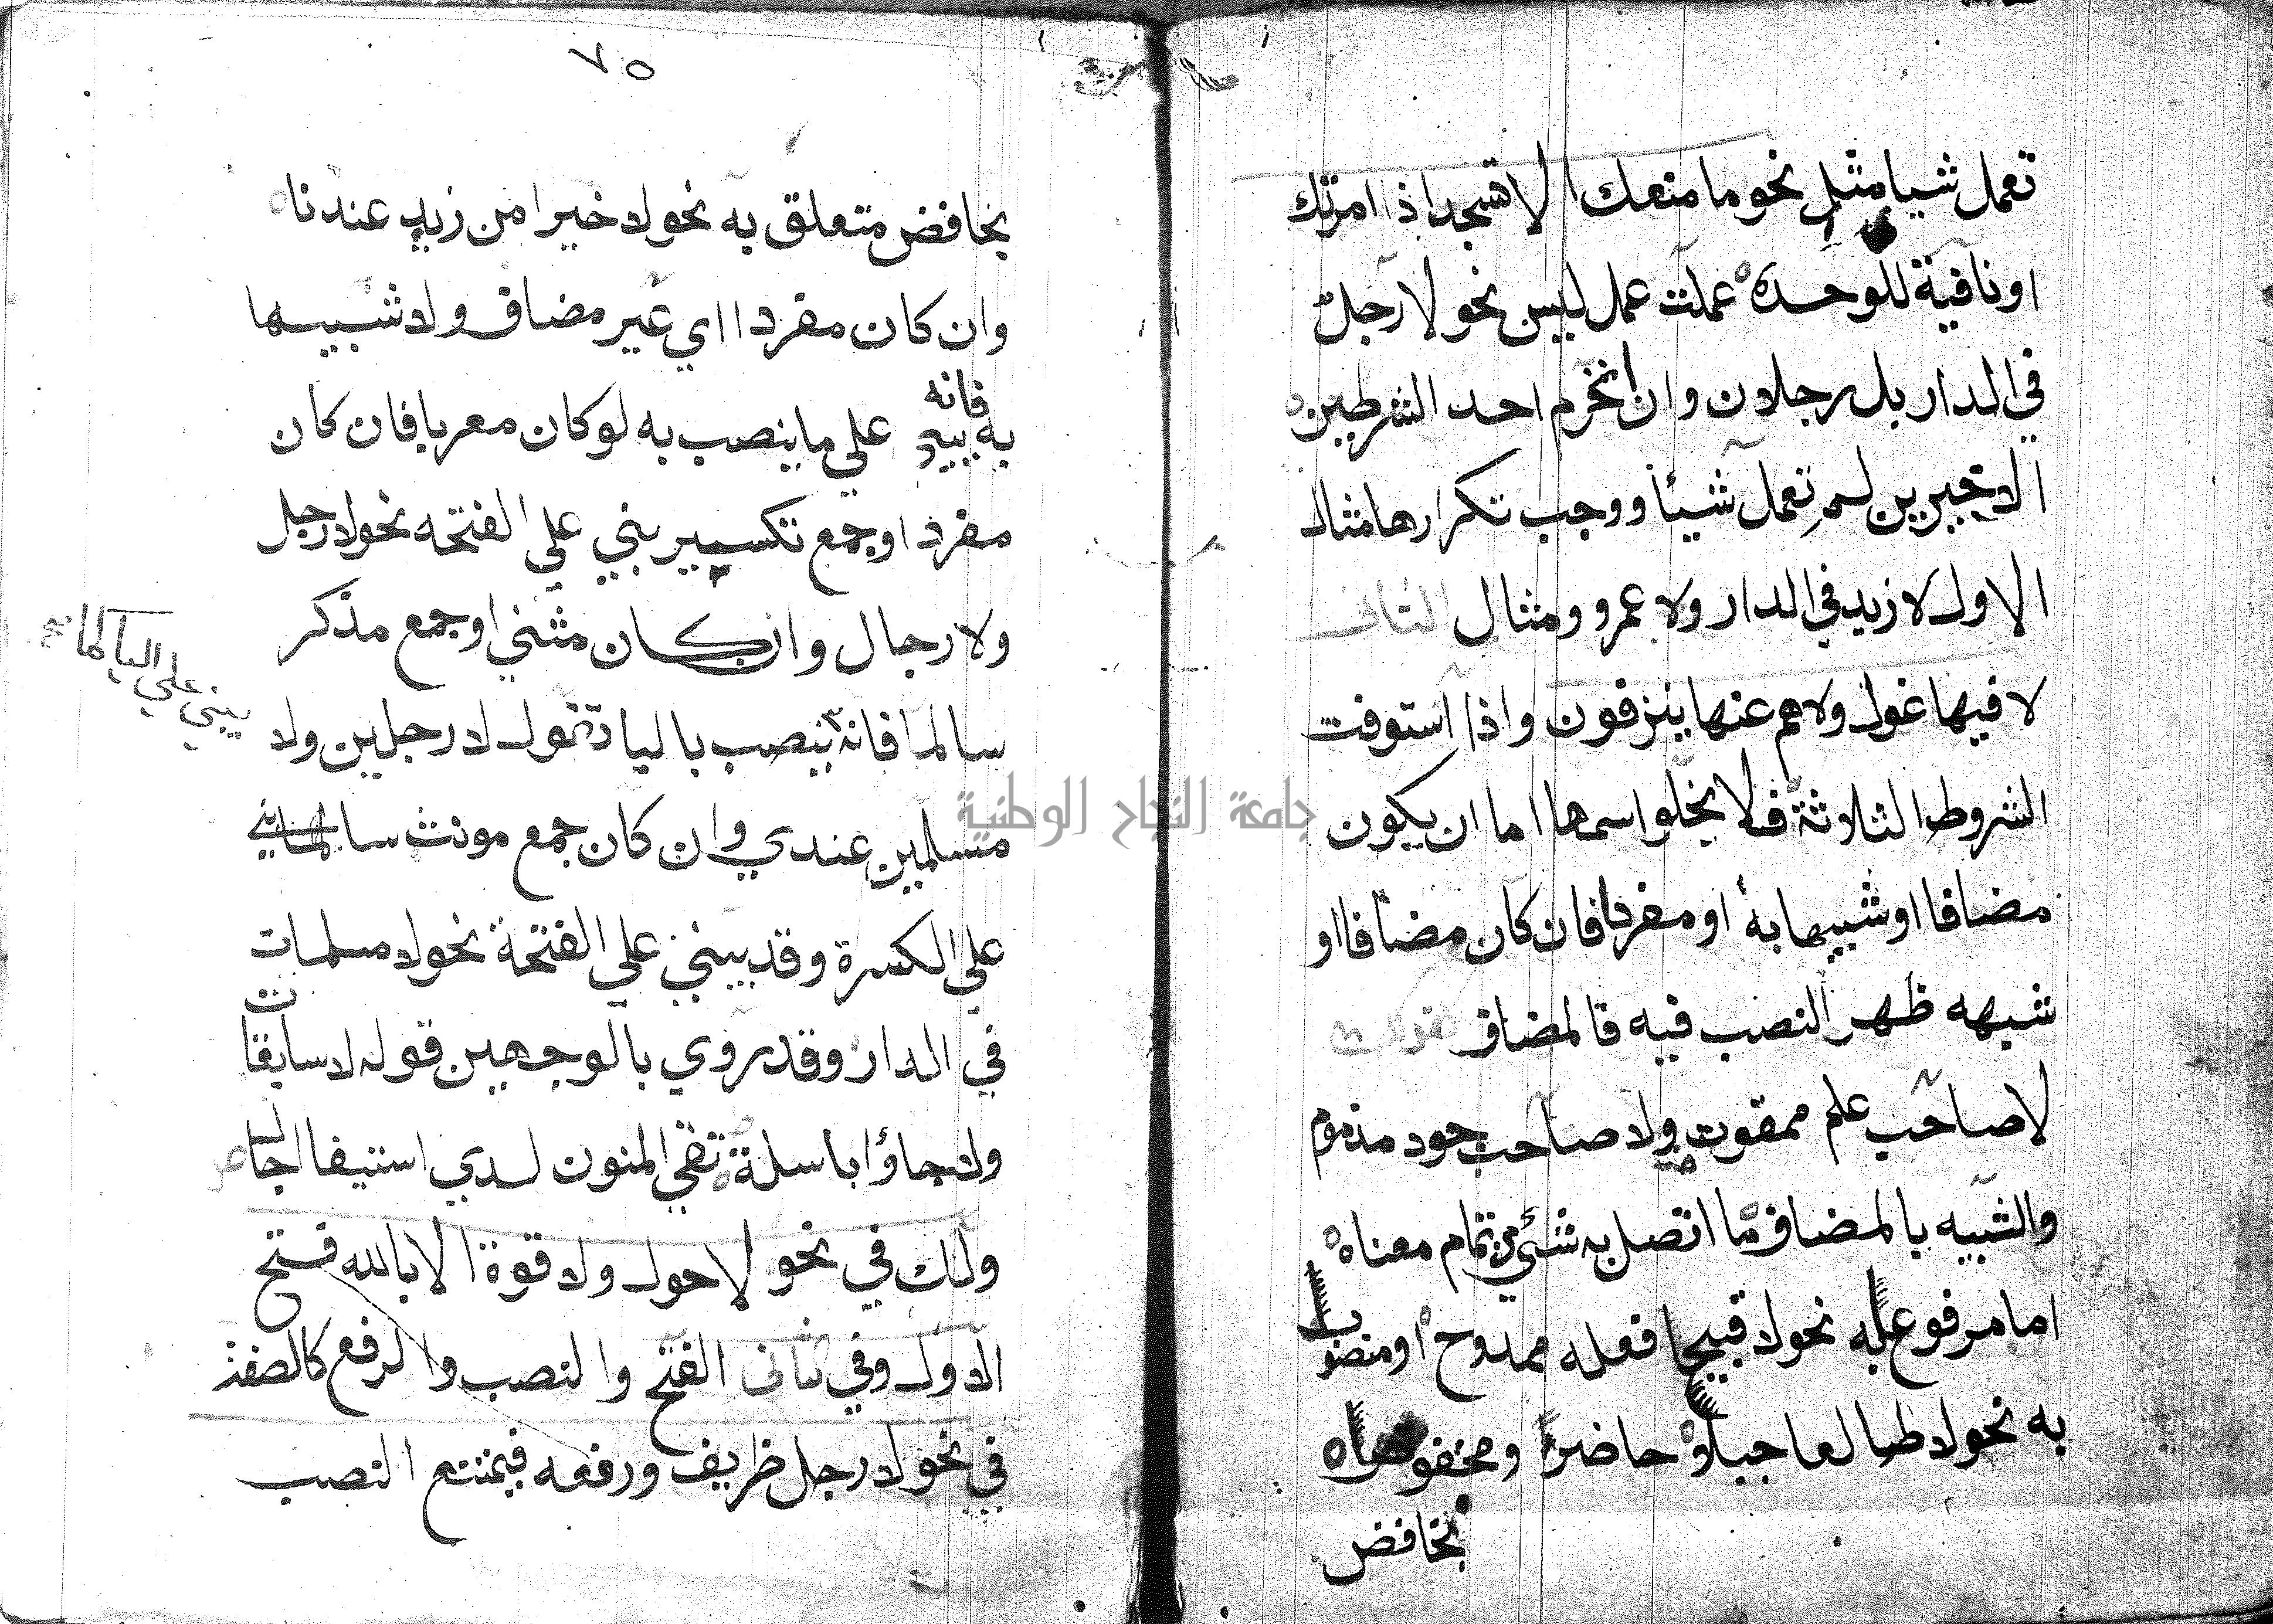 تعمل شيا مثل نحو ما منعك الا تسجد اذ امرتك
او نافية للوحدة عملت عمل ليس نحو لا رجل
في الدار بل رجلان وان انخرم احد الشرطين
الاخيرين لم تعمل شيئا ووجب تكرارها مثال
الاول لا زيد في الدار ولا عمرو ومثال الثاني
لا فيها غول ولا هم عنها ينزفون واذا استوفت
الشروط الثلاثة فلا يخلو اسمها اما ان يكون
مضافا او شبيها به او مفردا فان كان مضافا او
شبهه ظهر النصب فيه فالمضاف
لا صاحب علم ممقوت ولا صاحب جود مذموم
والشبيه بالمضاف ما اتصل به شئ من تمام معناه
اما مرفوع به نحو لا قبيحا فعله ممدوح او منصوب
به نحو لا طالعا جبلا حاضرا ومخفوض
بخافض
٧٥
بخافض متعلق به نحو لا خيرا من زيد عندنا
وان كان مفردا اي غير مضاف ولا شبيها
به فانه يبنى علي ما ينصب به لو كان معربا فان كان
مفردا او جمع تكسير بني علي الفتحه نحو لا رجل
ولا رجال وان كان مثني او جمع مذكر
سالما فانه ينصب باليا تقول لا رجلين ولا
يبني علي اليا كما
مسلمين عندي وان كان جمع مونث سالما بني
علي الكسرة وقد يبني علي الفتحة نحو لا مسلمات
في الدار وقد روي بالوجهين قوله لا سابقات
ولا جاؤا باسلة تقي المنون لدي استيفا اجال
ولك في نحو لا حول ولا قوة الا بالله فتح
الاول وفي الثاني الفتح والنصب والرفع كالصفة
في نحو لا رجل ظريف ورفعه فيمتنع النصب
جامعة النجاح الوطنية